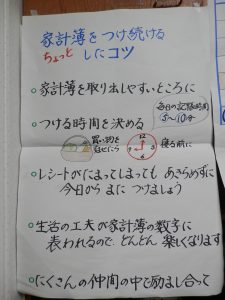 家計簿をつけ続ける
ちょっとしたコツ
○家計簿を取り出しやすいところに
毎日の記帳時間
5〜10分
○つける時間を決める
買い物を
12
3
6
9
寝る前に
○レシートがたまってしまっても あきらめずに
今日から またつけましょう
○生活の工夫が家計簿の数字に
表われるので、どんどん 楽しくなります
○たくさんの仲間の中で励まし合って